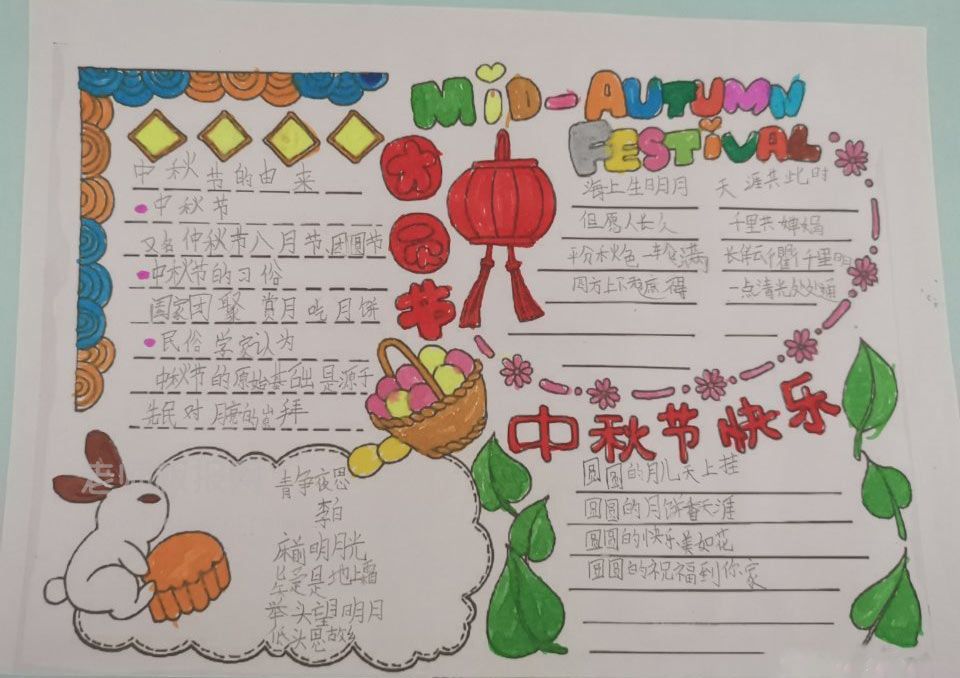 MiD-AUTUMN
FESTiVAL
节
中秋节的由来
中秋节
又名仲秋节八月节团圆节
中秋节的习俗
国家团聚 赏月吃月饼
民俗学家认为
中秋节的原始基础是源于
先民对月亮的崇拜
海上生明月 天涯共此时
但愿人长久 千里共婵娟
平分秋色一轮满 长伴云衢千里明
四方上下 一点清光处处通
中秋节快乐
圆圆的月儿天上挂
圆圆的月饼香天涯
圆圆的快乐美如花
圆圆的祝福到你家
静夜思
李白
床前明月光
是地上霜
举头望明月
低头思故乡